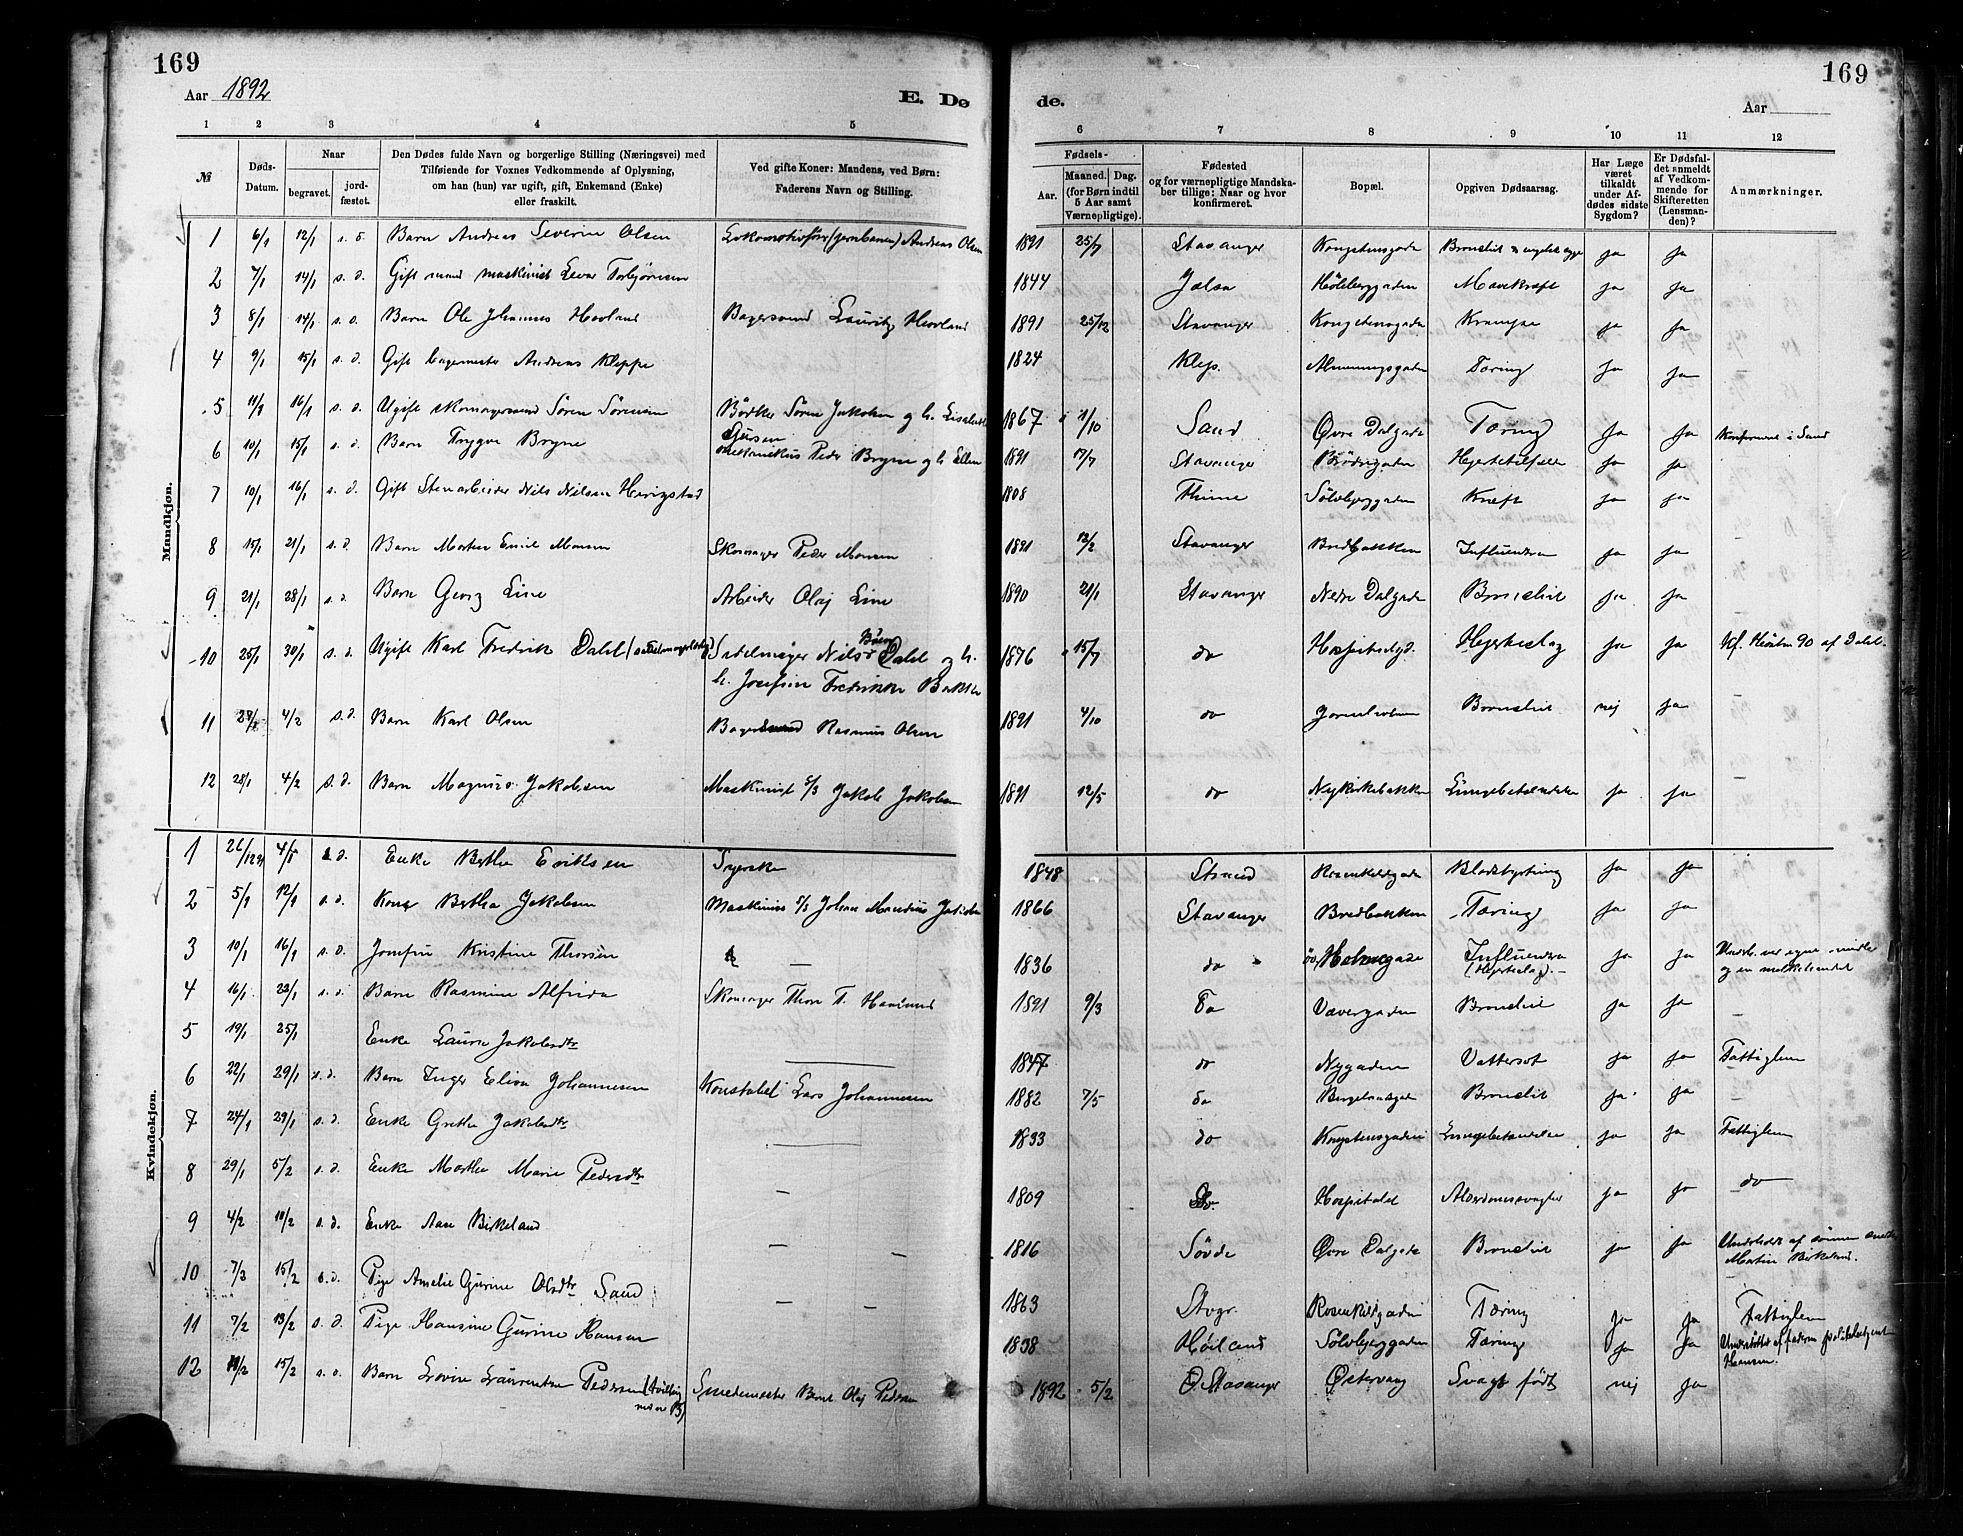 169
Aar 1892
E. Dø
de.
169
Aar
1 2 3 4 5 6 7 8 9 10 11 12
№
Døds-Datum.
Naar
begravet.
jord-fæstet.
Den Dødes fulde Navn og borgerlige Stilling (Næringsvei) med
Tilføiende for Voxnes Vedkommende af Oplysning,
om han (hun) var ugift, gift, Enkemand (Enke)
eller fraskilt.
Ved gifte Koner: Mandens, ved Børn:
Faderens Navn og Stilling.
Fødsels-
Aar.
Maaned. Dag.
(for Børn indtil
5 Aar samt
Værnepligtige).
Fødested
og for værnepligtige Mandska-
ber tillige: Naar og hvor
konfirmeret.
Bopæl.
Opgiven Dødsaarsag.
Har Læge
været
tilkaldt
under Af-
dødes sidste
Sygdom?
Er Dødsfal-
det anmeldt
af Vedkom-
mende for
Skifteretten
(Lensman-
den)?
Anmærkninger.
Mandkjøn.
1 6/1 12/1 s. d. Barn Andreas Severin Olsen Lokomotivfører (jernbanen) Andreas Olsen 1891 25/7 Stavanger Kongstensgade ja ja
2 7/1 14/1 s. d. Gift mand maskinist Torbjørnsen 1844 Jelsa Höleberggaden Mavekræft ja ja
3 8/1 14/1 s. d. Barn Ole Johannes Hovland Bagersvend Lauritz Hovland 1891 25/12 Stavanger Kongstensgade Krampe ja ja
4 9/1 15/1 s. d. Gift bagermester Andreas Kleppe 1824 Klep. Almenningsgaden Tæring ja ja
5 11/1 16/1 s. d. Ugift skomagersvend Sören Sörensen Bödker Sören Jakobsen og h. 1867 1/10 Sand Øvre Dalgade Tæring ja ja Konfirmeret i Sand
6 10/1 15/1 s. d. Barn Trygve Bryne Peder Bryne og h. Ellen 1891 17/7 Stavanger Brödregaden ja ja
7 10/1 16/1 s. d. Gift Stenarbeider Nils Nilsen Herigstad 1808 Thime Sölvberggaden Kræft ja ja
8 15/1 21/1 s. d. Barn Morten Emil Monsen Skomager Peder Monsen 1891 12/2 Stavanger Bredbakken Influendsa ja ja
9 21/1 28/1 s. d. Barn Georg Line Arbeider Olaj Line 1890 21/1 Stavanger Nedre Dalgade Bronchit ja ja
10 25/1 30/1 s. d. Ugift Karl Fredrik Dahl Sadelmager Nils Dahl og h.
h. Josefine Fredrikke 1876 15/7 do Hospitalsgd. Hjerteslag ja ja Kf. Hösten 90 af Dahl.
11 4/2 s. d. Barn Karl Olsen Bager Rasmus Olsen 1891 4/10 do Bronchit nej ja
12 28/1 4/2 s. d. Barn Magnus Jakobsen Maskinist s/s Jakob Jakobsen 1891 12/5 do Nykirkebakken Lungebetændelse ja ja
Kvindekjøn.
1 26/12 91 4/1 s. d. Enke Bertha Eriksen Syerske 1848 Strand Rosenkildegade Blodstyrtning ja ja
2 5/1 12/1 s. d. Kone Bertha Jakobsen Maskinist s/s Johan 1866 Stavanger Bredbakken Tæring ja ja
3 10/1 16/1 s. d. Josefine Kristine Thorsen — 1836 do Influendsa
(Hjerteslag). ja ja
4 16/1 22/1 s. d. Barn Rasmine Alfrida Skomager Thore T. 1891 9/3 do Vævergaden Bronchit ja ja
5 19/1 25/1 Enke Laura Jakobsdtr — 1847 do Nygaden Vattersot ja ja Fattiglem
6 22/1 29/1 s. d. Barn Inger Elisa Johannesen Konstabel Lars Johannesen 1882 7/5 do Bergelandsgade Bronchit ja ja
7 24/1 29/1 s. d. Enke Grethe Jakobsdtr — 1833 do Kongstensgaden Lungebetændelse ja ja Fattiglem
8 29/1 5/2 s. d. Enke Marthe Marie Pedersdtr — 1809 Hospitalet Alderdomssvaghed ja ja do
9 4/2 10/2 s. d. Enke Ane Birkeland — 1816 Søvde Øvre Dalgade Bronchit ja ja Underholdt af sönnen
Martin Birkeland.
10 7/2 15/2 s. d. Pige Amalie Gurine Olsdtr Sand — 1863 Stvgr. Rosenkildegaden Tæring ja ja Fattiglem
11 7/2 13/2 s. d. Pige Hansine Gurine Hansen 1838 Høiland Sölvberggaden Tæring ja ja Understöttet af faderen politibetjent
Hansen.
12 11/2 15/2 s. d. Barn Lovise Laurentze Pedersen (tvilling
med B) Smedemester Bernt Olaj Pedersen 1892 5/2 Stavanger Østervaag Svagt født nej ja